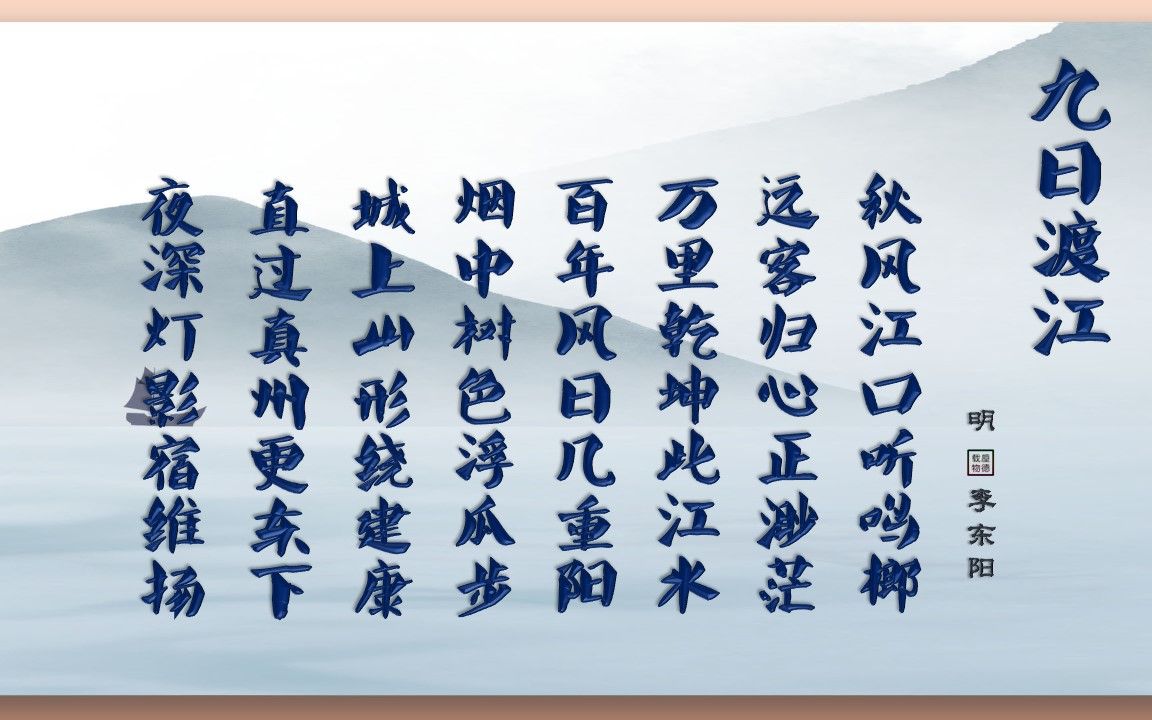 九日渡江
明
厚德
载物
李东阳
秋风江口听鸣榔
远客归心正渺茫
万里乾坤此江水
百年风日几重阳
烟中树色浮瓜步
城上山形绕建康
直过真州更东下
夜深灯影宿维扬